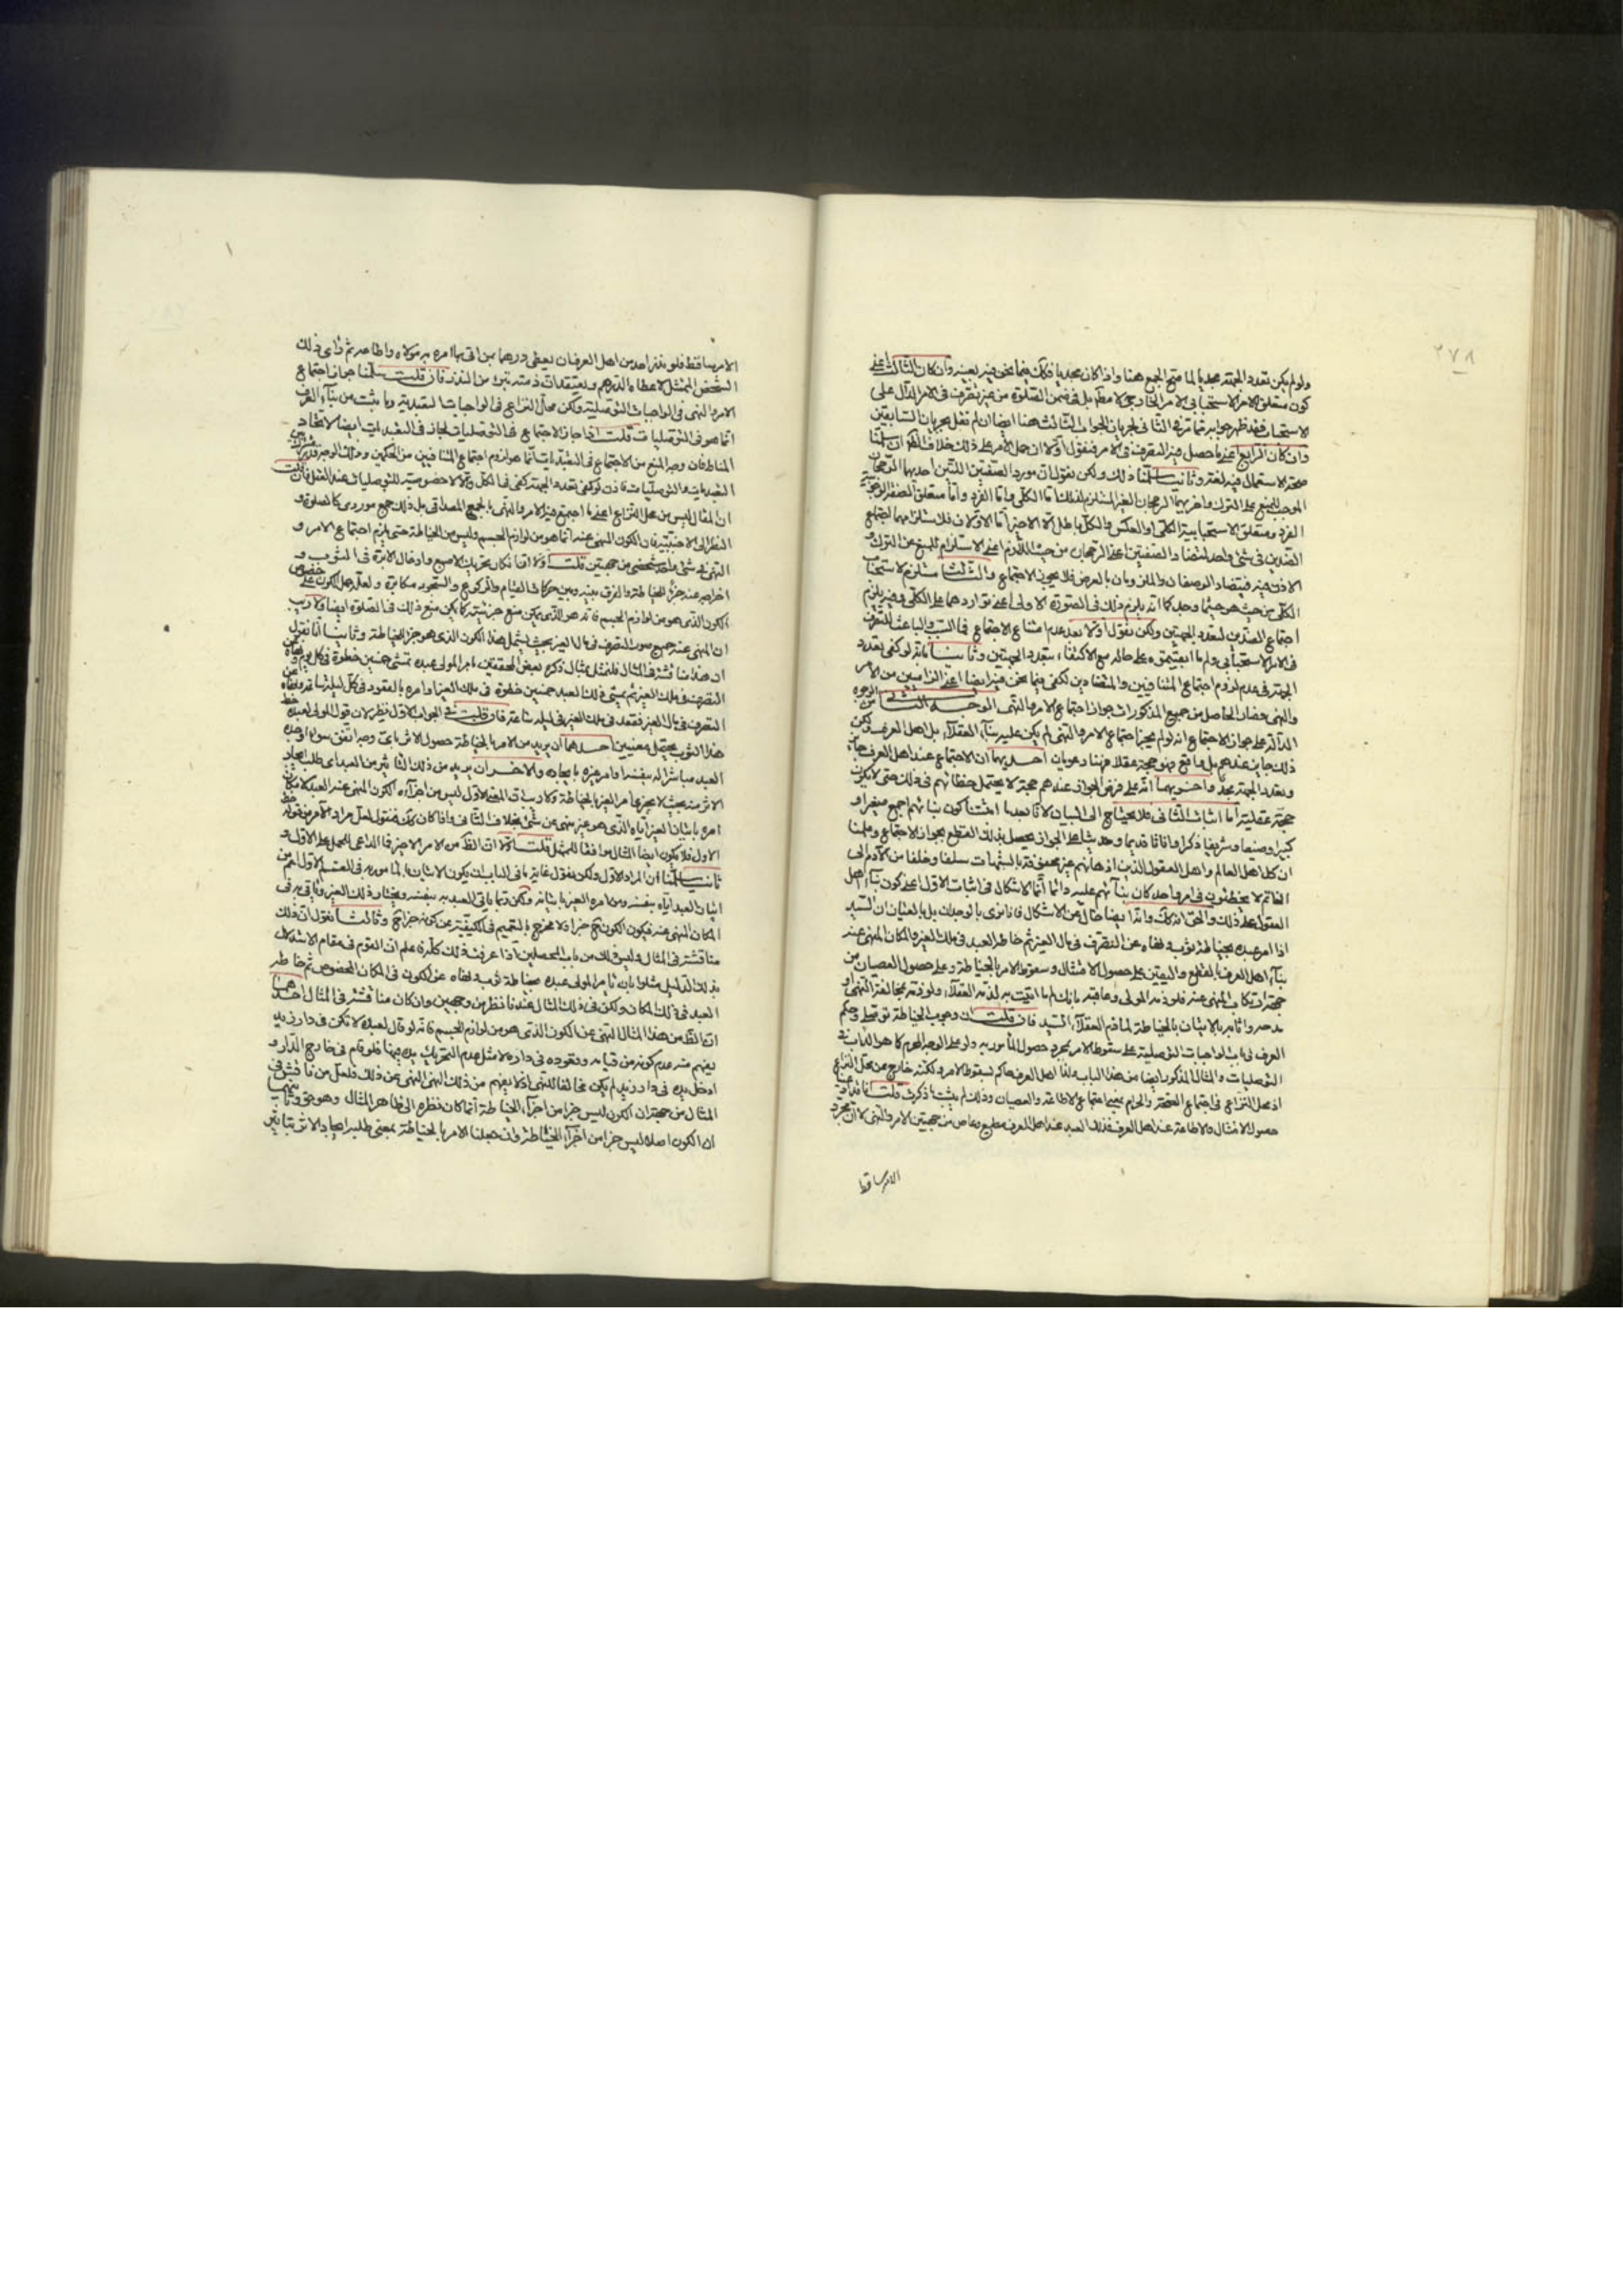 ٢٧٨
ولو لم يكن تعدد الجهة مجديا لما صح الجمع هنا واذا كان مجديا فكك فيما نحن فيه بعينه وان كان الثالث اعنى
كون متعلق الامر الاستحبابى الامر الخارجى لا مطم بل فى ضمن الصلوة من غير تصرف فى الامر الدال على
الاستحباب فقد ظهر جوابه مما مر فى الثانى لجريان الجواب الثالث هنا ايضا ان لم نقل بجريان السابقين
وان كان الرابع اعنى ما حصل فيه التصرف فى الامر فنقول اولا ان حمل الامر على ذلك خلاف الظ وان سلمنا
صحة الاستعمال فيه لغة وثانيا سلمنا ذلك ولكن نقول ان مورد الصفتين اللتين احديهما الرجحان
الموجب للمنع على الترك واخريهما الرجحان الغير المستلزم لذلك اما الكلى واما الفرد واما متعلق الصفة الوجوبية
الفرد ومتعلق الاستحبابية الكلى او بالعكس والكل باطل الا الاخير اما الاولان فلاستلزامهما اجتماع
الضدين فى شئ واحد لتضاد الصفتين اعنى الرجحان من حيث اللازم اعنى الاستلزام للمنع عن الترك و
الاذن فيه فيتضاد الوصفان والملزومان بالعرض فلا يجوز الاجتماع والثالث مستلزم لاستحباب
الكلى من حيث هو حيثما وجد كما انه يلزم ذلك فى الصورة الاولى اعنى تواردهما على الكلى وفيه يلزم
اجتماع الضدين لتعدد الجهتين ولكن نقول اولا بعد عدم امتناع الاجتماع فما السبب والباعث للتصرف
فى الامر الاستحبابى ولم ما ابقيتموه على حاله مع الاكتفاء بتعدد الجهتين وثانيا بانه لو كفى تعدد
الجهة فى عدم لزوم اجتماع المتنافيين والمتضادين لكفى فيما نحن فيه ايضا اعنى الزامين من الامر
والنهى فصار الحاصل من جميع المذكورات جواز اجتماع الامر والنهى الوجه الثانى من الوجوه
الدالة على جواز الاجتماع انه لو لم يجز اجتماع الامر والنهى لم يكن عليه بناء العقلاء بل اهل العرف ولكن
ذلك جايز عندهم بل واقع فهو حجة عقلا فهنا دعويان احديهما ان الاجتماع عند اهل العرف جايز
وتعدد الجهة مجد واخريهما انه على فرض الجواز عندهم حجة لا يحتمل خطائهم فى ذلك حتى لا يكون
حجة عقلية اما اثبات الثانى فلا يحتاج الى البيان لانا بعد ما اثبتنا كون بنائهم اجمع صغيرا و
كبيرا وضيعا وشريفا ذكرا واناثا قديما وحديثا على الجواز يحصل بذلك القطع بجواز الاجتماع وعلمنا
ان كل اهل العالم واهل العقول الذين اذهانهم غير محفوفة بالشبهات سلفا وخلفا من الادم الى
الخاتم لا يخطئون فى امر واحد كان بنائهم عليه دائما انما الاشكال فى اثبات الاول اعنى كون بناء اهل
العقول على ذلك والحق انه كك وانه ايضا خال عن الاشكال فانا نرى بالوجدان بل بالعيان ان السيد
اذا امر عبده بخياطة ثوبه ونهاه عن التصرف فى مال الغير ثم خاط العبد فى ملك الغير والمكان المنهى عنه
بناء اهل العرف بالقطع واليقين على حصول الامتثال وسقوط الامر بالخياطة وعلى حصول العصيان من
جهة ارتكاب المنهى عنه فلو ذمه المولى وعاقبه بانك لم ما اتيت به لذمه العقلاء ولو ذمه بمخالفة النهى او
مدحه واثابه بالاتيان بالخياطة لما ذم العقلاء السيد فان قلت ان وجوب الخياطة توصلى وحكم
العرف فى باب الواجبات التوصلية على سقوط الامر بمجرد حصول المأمور به ولو على الوجه المحرم كما هو الداب فى
التوصليات والمثال المذكور ايضا من هذا الباب فلذا اهل العرف حاكم بسقوط الامر ولكنه خارج عن محل النزاع
اذ محل النزاع فى اجتماع الصحة والحرام بمعنى اجتماع الاطاعة والعصيان وذلك لم يثبت مما ذكرت قلت انا ندعى
حصول الامتثال والاطاعة عند اهل العرف فذلك العبد عند اهل العرف مطيع وعاص من جهتين الامر والنهى لا ان مجرد
الامر ساقط
الامر ساقط فلو نذر احد من اهل العرف ان يعطى درهما من اتى بما امره به مولاه واطاعه ثم راى ذلك
الشخص الممثل لاعطاه الدرهم ويعتقد ان ذمته تبرئ من النذر فان قلت سلمنا جواز اجتماع
الامر والنهى فى الواجبات التوصلية ولكن محل النزاع فى الواجبات التعبدية وما يثبت من بناء العرف
انما هو فى التوصليات قلت اذا جاز الاجتماع فى التوصليات لجاز فى التعبديات ايضا لاتحاد
المناط فان وجه المنع من الاجتماع فى التعبديات انما هو لزوم اجتماع المتنافيين من الحكمين وذلك الوجه قدر مشترك بين
التعبديات والتوصليات فاذن لو كفى تعدد الجهة كفى فى الكل والا فلا خصوصية للتوصليات عند العقل فان قلت
ان المثال ليس من محل النزاع اعنى ما اجتمع فيه الامر والنهى بالجمع المصداقى بل ذلك جمع موردى كالصلوة و
النظر الى الاجنبية فان الكون المنهى عنه انما هو من لوازم الجسم وليس من الخياطة حتى يلزم اجتماع الامر و
النهى فى شئ واحد شخصى من جهتين قلت اولا ان انكار تحريك الاصبع وادخال الابرة فى الثوب و
اخراجه عنه جزء الخياطة والفرق بينه وبين حركات القيام والركوع والسجود مكابرة ولعله حمل الكون على خصوص
الكون الذى هو من لوازم الجسم فانه هو الذى يمكن منع جزئيته كما يمكن منع ذلك فى الصلوة ايضا ولا ريب
ان المنهى عنه جميع صور التصرف فى مال الغير بحيث يشمل هذا الكون الذى هو جزء للخياطة وثانيا انا نقول
ان هذا مناقشة فى المثال فلنمثل بمثال ذكره بعض المحققين امر المولى عبده بمشى خمسين خطوة فى كل يوم ونهاه عن
التصرف فى ملك الغير ثم يمشى ذلك العبد خمسين خطوة فى ملك الغير او امره بالقعود فى كل ليلة ساعة ونهاه عن
التصرف فى مال الغير فقعد فى ملك الغير فى ليلة ساعة فان قلت فى الجواب الاول نظر لان قول المولى لعبده خط
هذا الثوب يحتمل معنيين احدهما ان يريد من الامر بالخياطة حصول الاثر باى وجه اتفق سواء اوجده
العبد مباشرا له بنفسه او امر غيره بايجاده والاخر ان يريد من ذلك التاثير من العبد اى طلب ايجاد
الاثر منه بحيث لا يجزى امر الغير بالخياطة ولا ريب ان المعنى الاول ليس من اجزائه الكون المنهى عنه العبد لامكان
امره باتيان الغير اياه الذى هو غير منهى عن شئ بخلاف الثانى واذا كان كك فنقول لعل مراد الامر من قوله خط
الاول فلا يكون ايضا المثال موافقا للممثل قلت اولا ان الظ من الامر الاخير فما الداعى للحمل على الاول و
ثانيا سلمنا ان المراد الاول ولكن نقول غاية ما فى الباب ان يكون الاتيان بالمامور به فى القسم الاول اعم من
اتيان العبد اياه بنفسه ومن امره الغير باتيانه ولكن ربما ياتى العبد به بنفسه ويختار ذلك الغير وياتى به فى
المكان المنهى عنه فيكون الكون ح جزءا ولا يخرج بالتعميم فى الكيفية عن كونه جزءا ح وثالثا نقول ان ذلك
مناقشة فى المثال وليس ذلك من باب المحصلين اذا عرفت ذلك كله فاعلم ان القوم فى مقام الاستدلال
بذلك الدليل مثلوا بان يامر المولى عبده بخياطة ثوبه ونهاه عن الكون فى المكان المخصوص ثم خاطه
العبد فى ذلك المكان ولكن فى ذلك المثال عندنا نظر من وجهين وان كان مناقشة فى المثال احدهما
ان الظ من هذا المثال النهى عن الكون الذى هو من لوازم الجسم فانه لو قال لعبده لا تكن فى دار زيد
يفهم منه عدم كونه من قيامه وقعوده فى داره لا مثل عدم التحريك بيده فيها فلو قام فى خارج الدار و
ادخل يده فى دار زيد لم يكن مخالفا للنهى اذ لا يفهم من ذلك النهى النهى عن ذلك ولعل من ناقش فى
المثال من جهة ان الكون ليس جزءا من اجزاء الخياطة انما كان نظره الى ظاهر المثال وهو حق وثانيهما
ان الكون اصلا ليس جزءا من اجزاء الخياطة وان جعلنا الامر بالخياطة بمعنى طلب ايجاد الاثر بتاثير